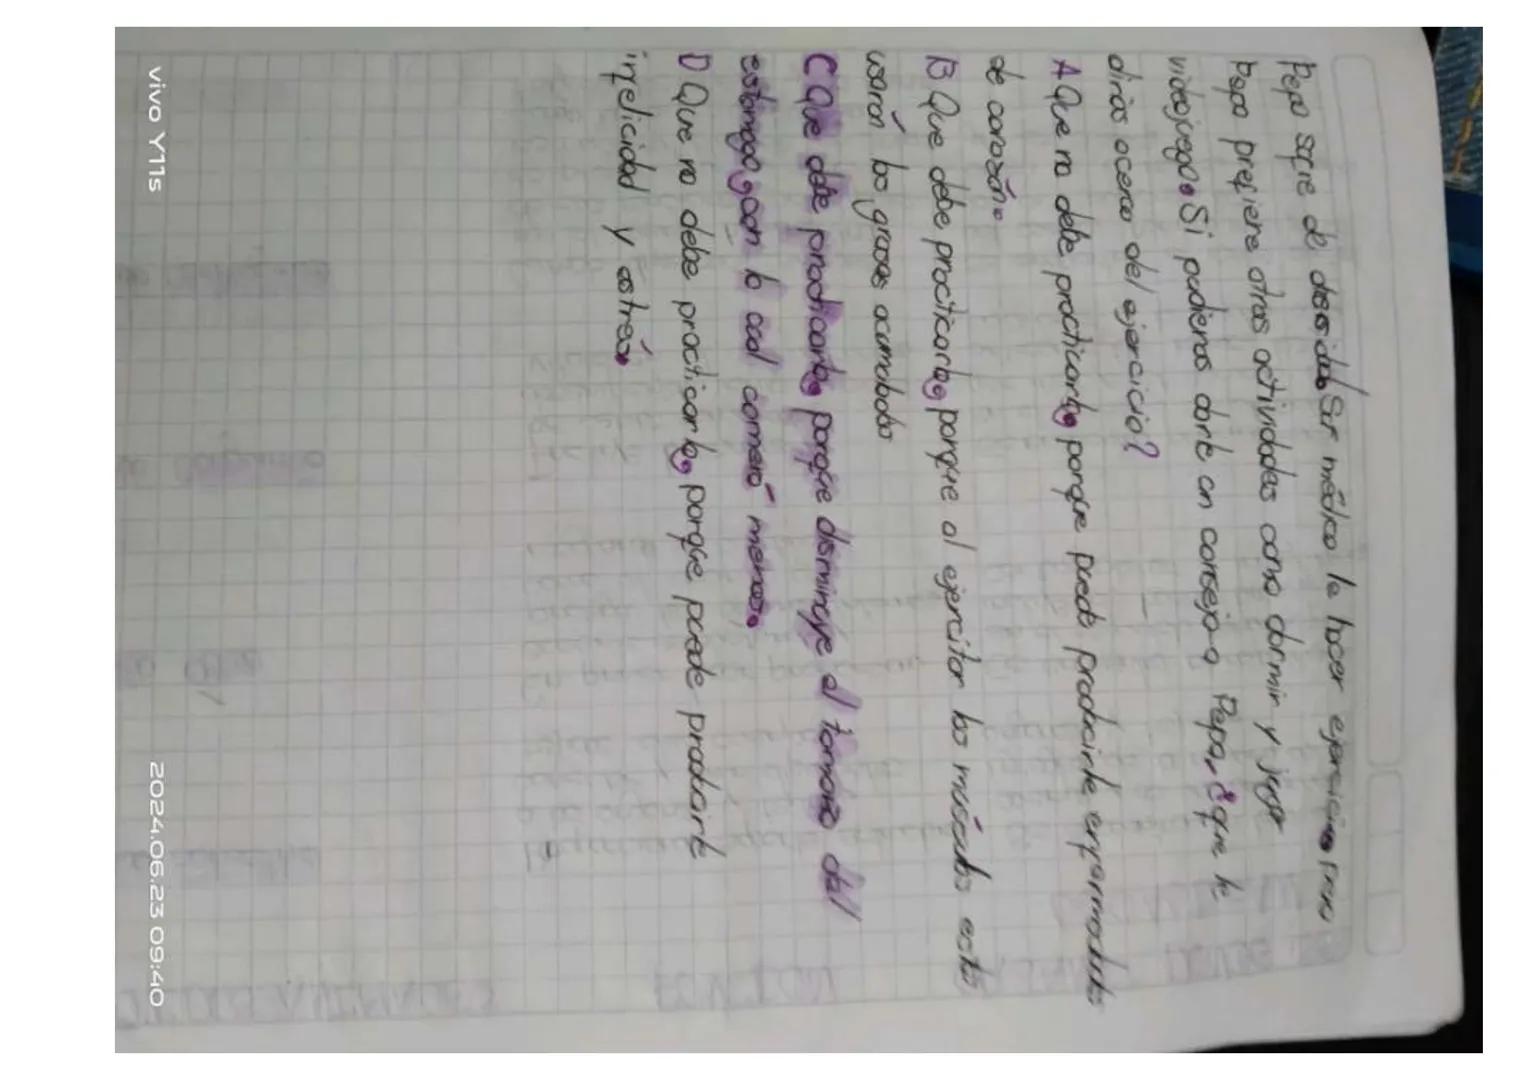 Pepa sufre de obesidad. Ser médico le hacer ejercicio. Pero
Pepa prefiere otras actividades como dormir y jugar
videojuego. Si pudieras darle un consejo a Pepa, ¿que le
dirías acerca del ejercicio?
A Que no debe practicarlo, porque puede producirle enfermedades
de corazón.
B Que debe practicarlo, porque al ejercitar los músculos estos
usarán las grasas acumulados
C Que debe practicarlo, porque disminuye el tamaño dell
estomago, con lo cual comerá menos.
D Que no debe practicarlo, porque puede producirle
infelicidad y estrés.
vivo Y11s
2024.06.23 09:40